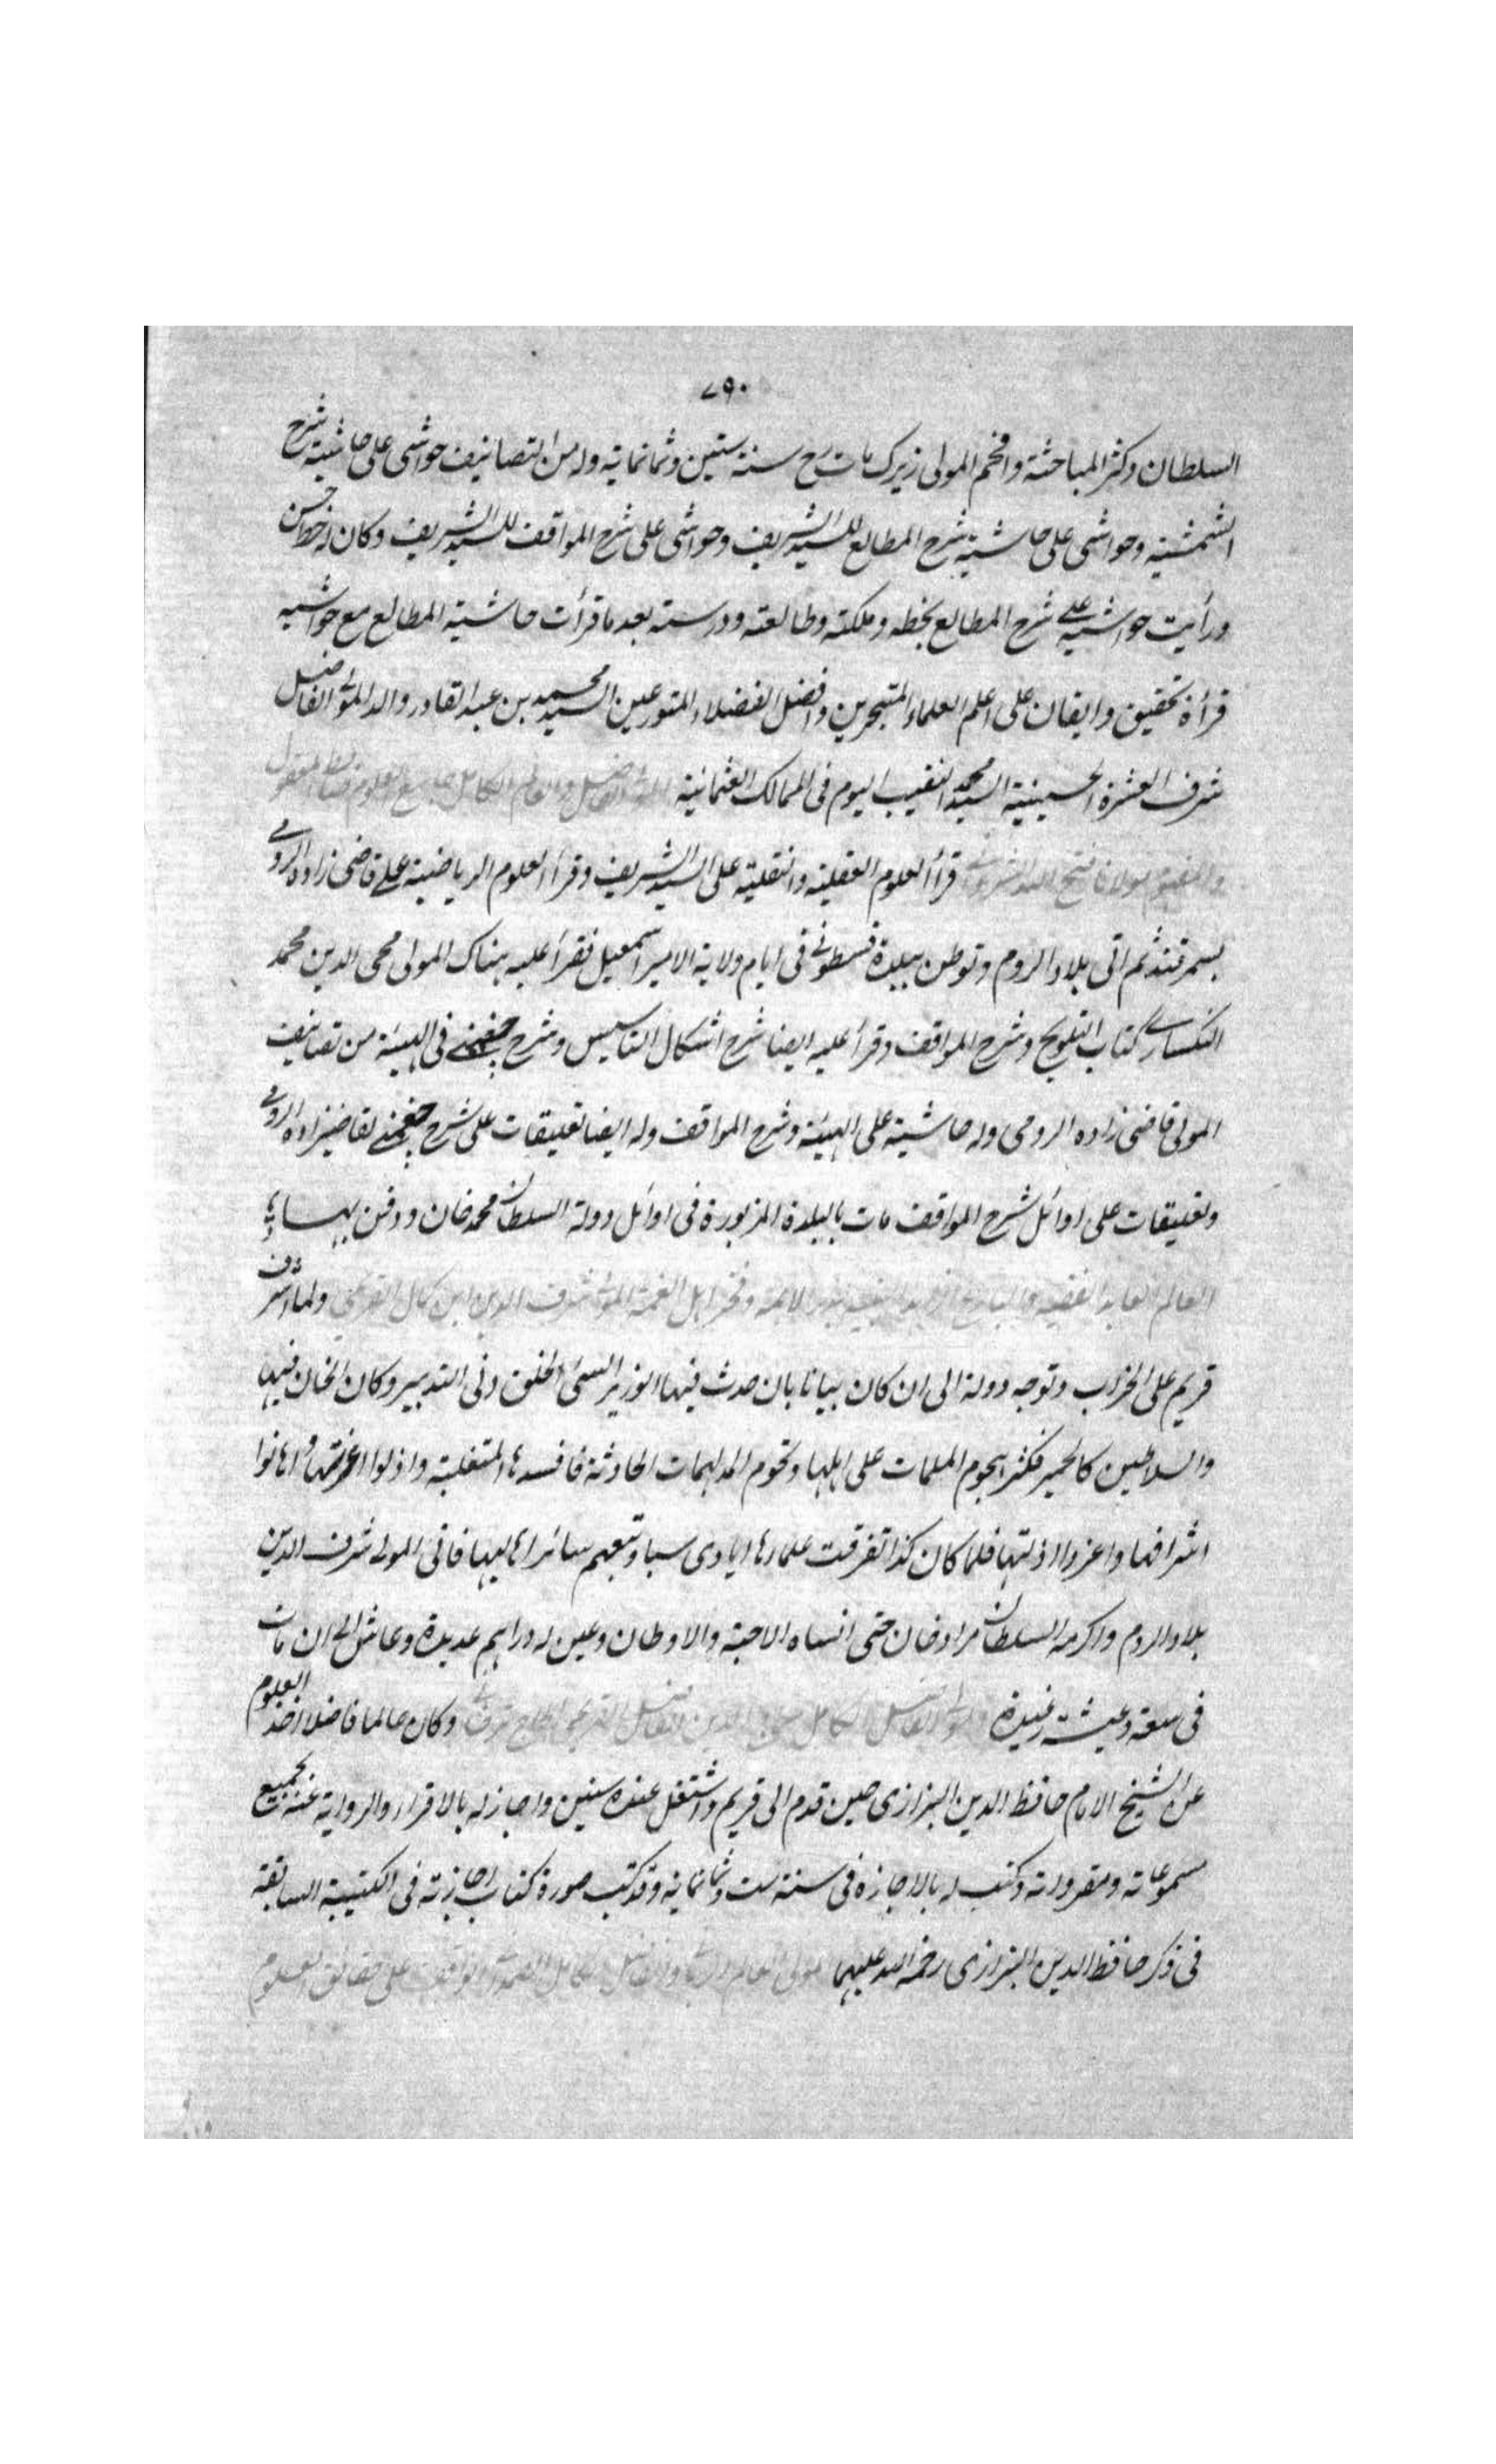 ٧٩٠
السلطان وكثر المباحثة وافحم المولى زيرك مات رح سنة ستين وثمانماية وله من التصانيف حواشى على حاشية شرح
الشمسية وحواشى على حاشية شرح المطالع للسيد الشريف وحواشى على شرح المواقف للسيد الشريف وكان له خط حسن
ورأيت حواشيه على شرح المطالع بخطه وملكته وطالعته ودرسته بعد ما قرأت حاشية المطالع مع حواشيه
قرأة تحقيق وايقان على اعلم العلماء المتبحرين وافضل الفضلاء المتورعين السيد محمد بن عبد القادر والد المولى الفاضل
شرف العشرة الحسينية السيد محمد النقيب اليوم فى الممالك العثمانية المولى الفاضل والعالم الكامل جامع العلوم ضابط المعقول
والمفهوم مولانا فتح الله الشروانى قرأ العلوم العقلية والنقلية على السيد الشريف وقرأ العلوم الرياضية على قاضى زاده الرومى
بسمرقند ثم اتى بلاد الروم وتوطن ببلدة قسطمونى فى ايام ولاية الامير اسمعيل فقرأ عليه هناك المولى محى الدين محمد
النكسارى كتاب التلويح وشرح المواقف وقرأ عليه ايضا شرح اشكال التاسيس وشرح چغمنى فى الهيئة من تصانيف
المولى قاضى زاده الرومى وله حاشية على الهيئة وشرح المواقف وله ايضا تعليقات على شرح چغمنى لقاضيزاده الرومى
وتعليقات على اوائل شرح المواقف مات بالبلدة المزبورة فى اوائل دولة السلطان محمد خان ودفن بها
العالم العابد الفقيه والبارع الزاهد النبيه الائمة وفخر اهل الغمة المولى شرف الدين ابن كمال القريمى ولما اشرف
قريم على الخراب وتوجه دولة الى ان كان بيانا بان حدث فيها الوزير السئ الخلق دنى التدبير وكان الخان فيها
والسلاطين كالحمير فكثر هجوم الملمات على اهلها وتخوم المدلهمات الحادثة فافسدها المتغلبة واذلوا اعزتها واهانوا
اشرافها واعزوا اذلتها فلما كان كذا تفرقت علماؤها ايادى سبا وتبعهم سائر اهاليها فاتى المولى شرف الدين
بلاد الروم واكرمه السلطان مراد خان حتى انساه الاحبة والاوطان وعين له دراهم عديدة وعاش الى ان مات
فى سعة وعيشة رغيدة المولى الفاضل الكامل الدين الفاضل القريمى وكان عالما فاضلا اخذ العلوم
عن الشيخ الامام حافظ الدين البزازى حين قدم الى قريم واشتغل عنده سنين واجاز له بالاقراء والرواية عنه بجميع
مسموعاته ومقرواته وكتب له بالاجازة فى سنة ست وثمانمائة وقد كتب صورة كتاب اجازته فى الكتيبة السابقة
فى ذكر حافظ الدين البزازى رحمة الله عليهما المولى العالم والفاضل الكامل على حقائق العلوم